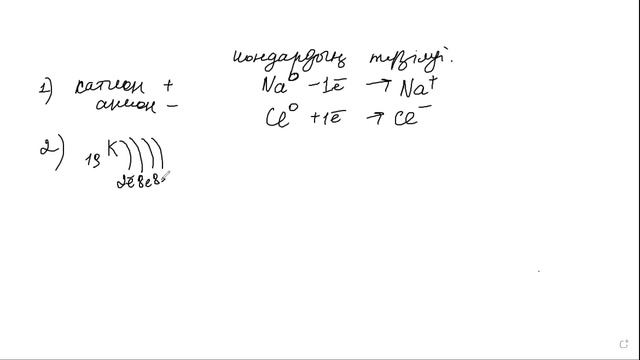 иондардың түзілуі.
1) катион +
анион −
Na⁰ −1ē → Na⁺
Cl⁰ +1ē → Cl⁻
2) 19 K ) ) ) )
2ē 8ē 8